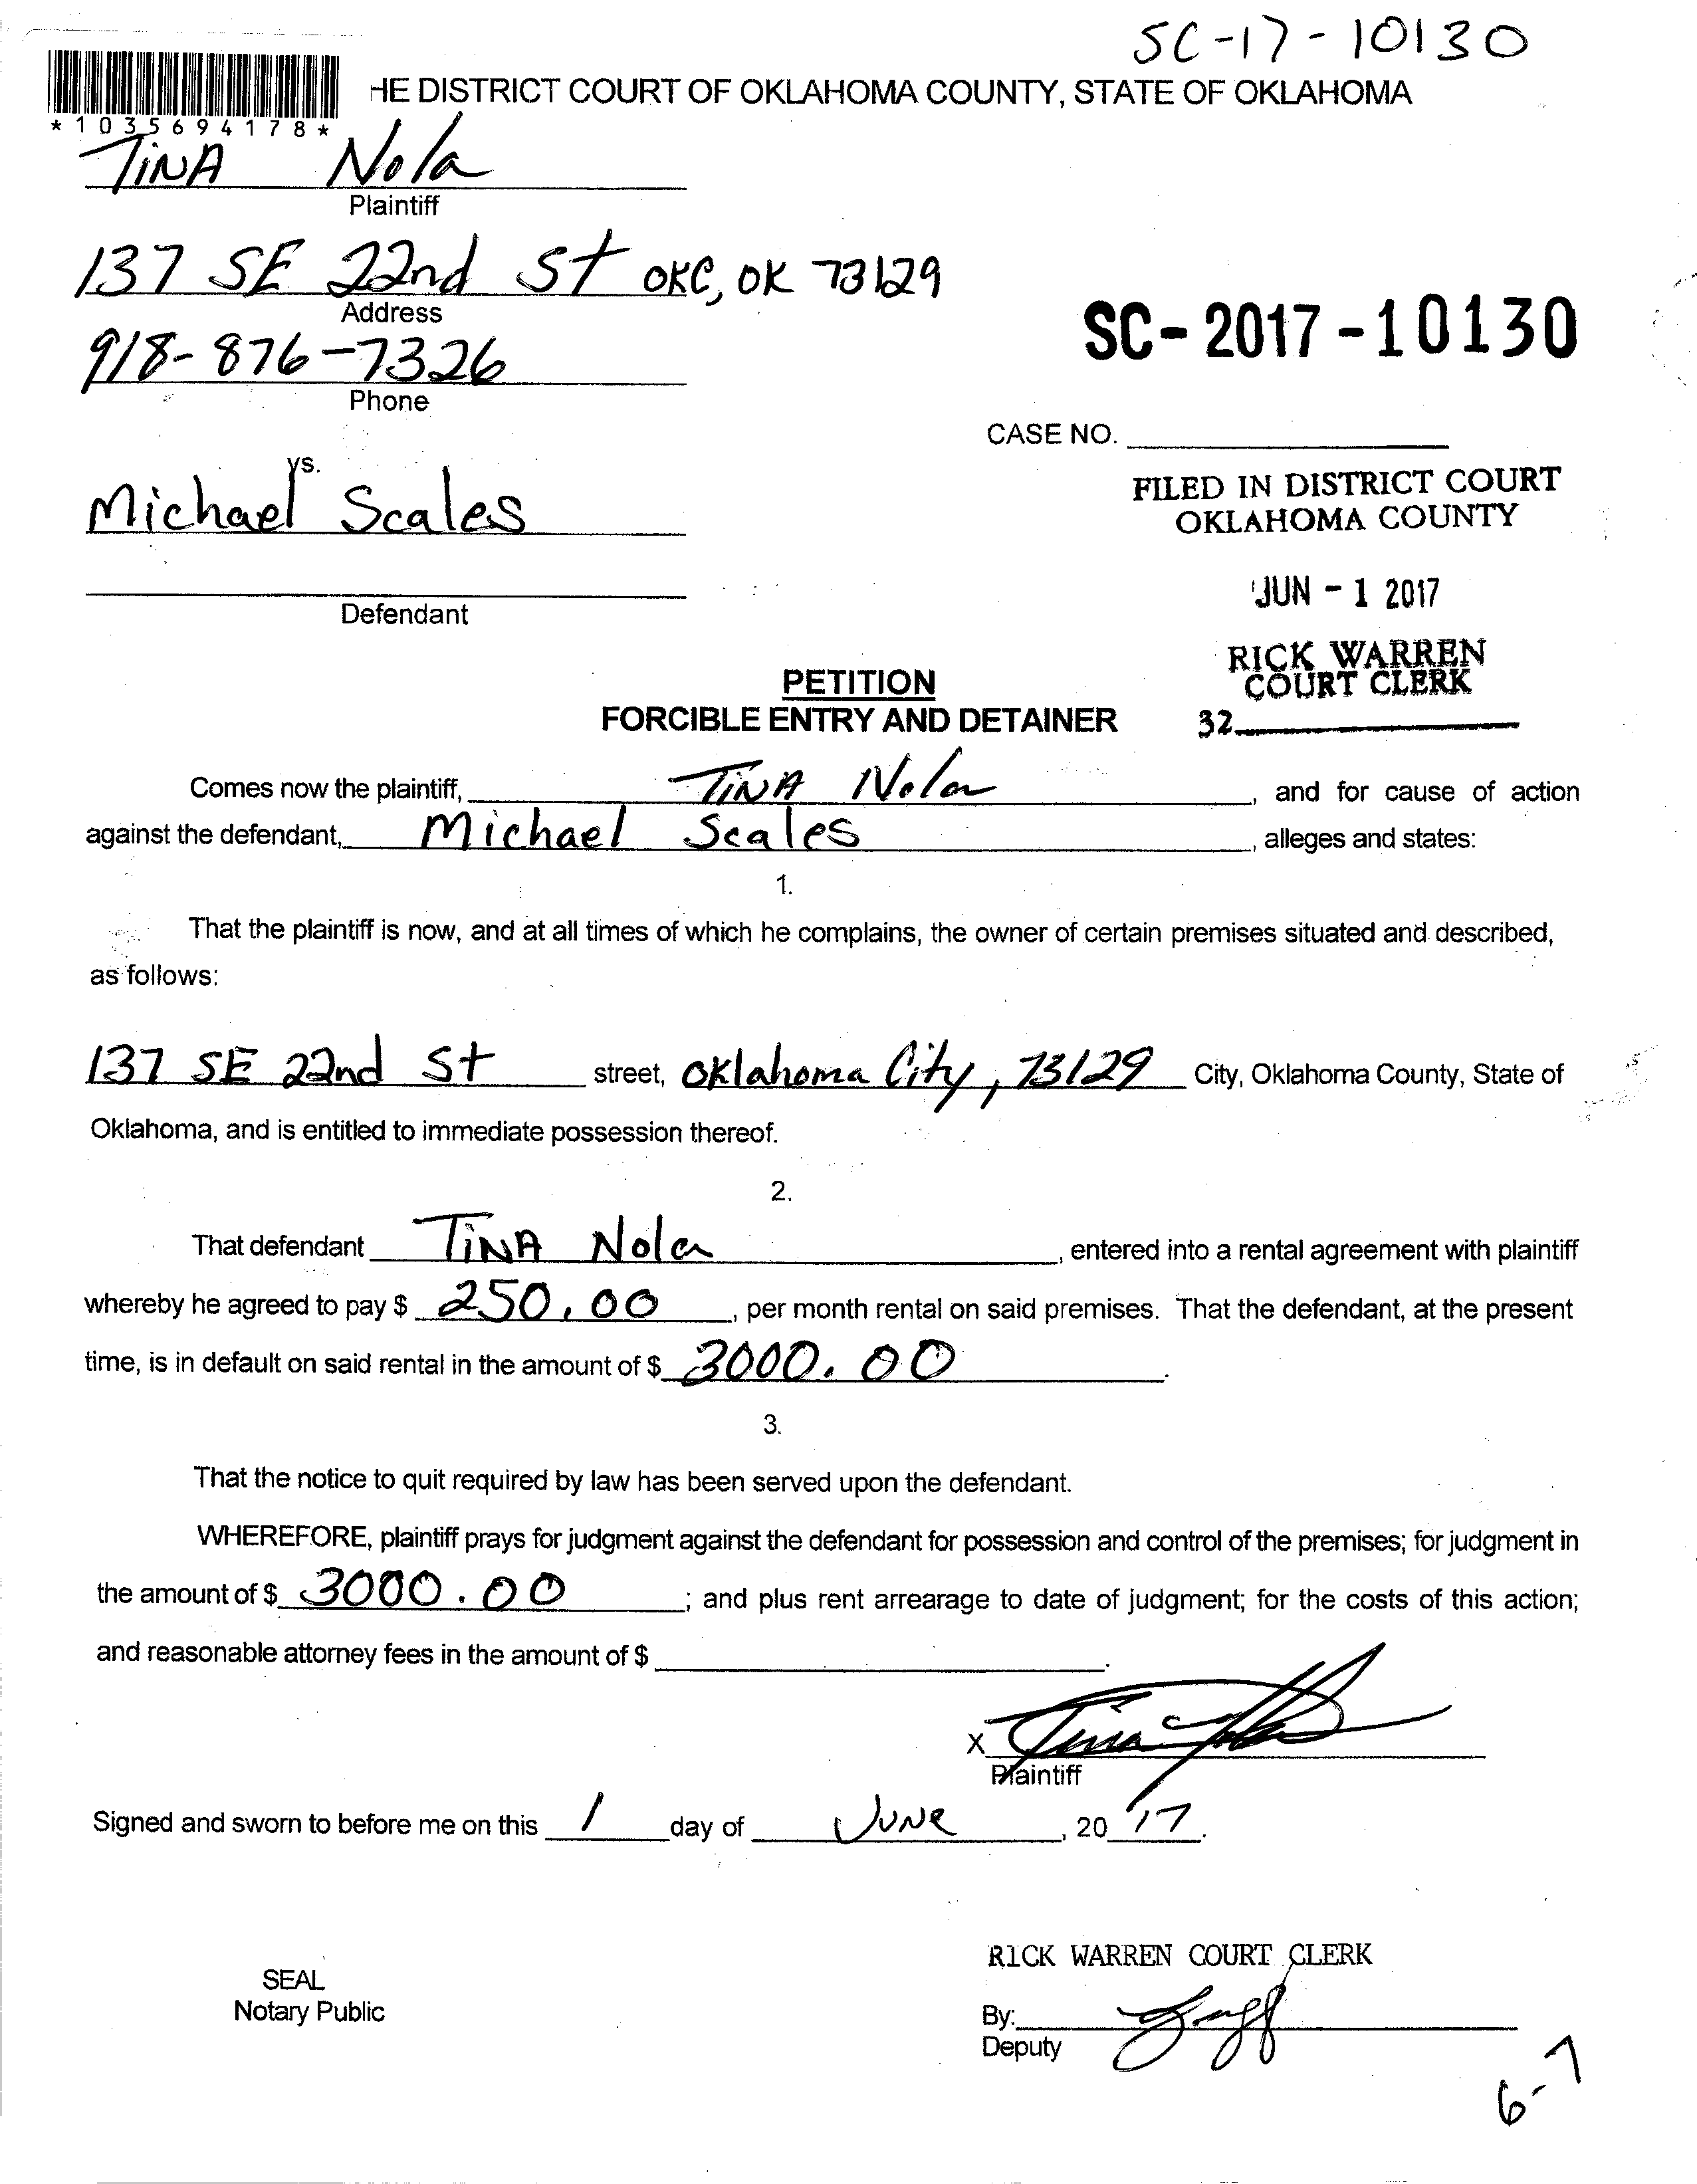 SC-17-10130
HE DISTRICT COURT OF OKLAHOMA COUNTY, STATE OF OKLAHOMA
*1035694178*
TiNA Nola
Plaintiff
137 SE 22nd St OKC, OK 73129
Address
SC-2017-10130
918-876-7326
Phone
CASE NO.
vs.
FILED IN DISTRICT COURT
OKLAHOMA COUNTY
Michael Scales
JUN - 1 2017
Defendant
RICK WARREN
COURT CLERK
32
PETITION
FORCIBLE ENTRY AND DETAINER
Comes now the plaintiff, TiNA Nola, and for cause of action
against the defendant, Michael Scales, alleges and states:
1.
That the plaintiff is now, and at all times of which he complains, the owner of certain premises situated and described,
as follows:
137 SE 22nd St street, Oklahoma City, 73129 City, Oklahoma County, State of
Oklahoma, and is entitled to immediate possession thereof.
2.
That defendant TiNA Nola, entered into a rental agreement with plaintiff
whereby he agreed to pay $ 250.00, per month rental on said premises. That the defendant, at the present
time, is in default on said rental in the amount of $ 3000.00.
3.
That the notice to quit required by law has been served upon the defendant.
WHEREFORE, plaintiff prays for judgment against the defendant for possession and control of the premises; for judgment in
the amount of $ 3000.00; and plus rent arrearage to date of judgment; for the costs of this action;
and reasonable attorney fees in the amount of $ .
X Tina Nola
Plaintiff
Signed and sworn to before me on this 1 day of JUNe, 20 17.
RICK WARREN COURT CLERK
SEAL
Notary Public
By:
Deputy
6-7